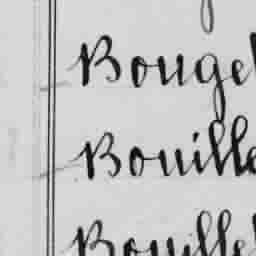 Bougel
Bouille
Bouillel